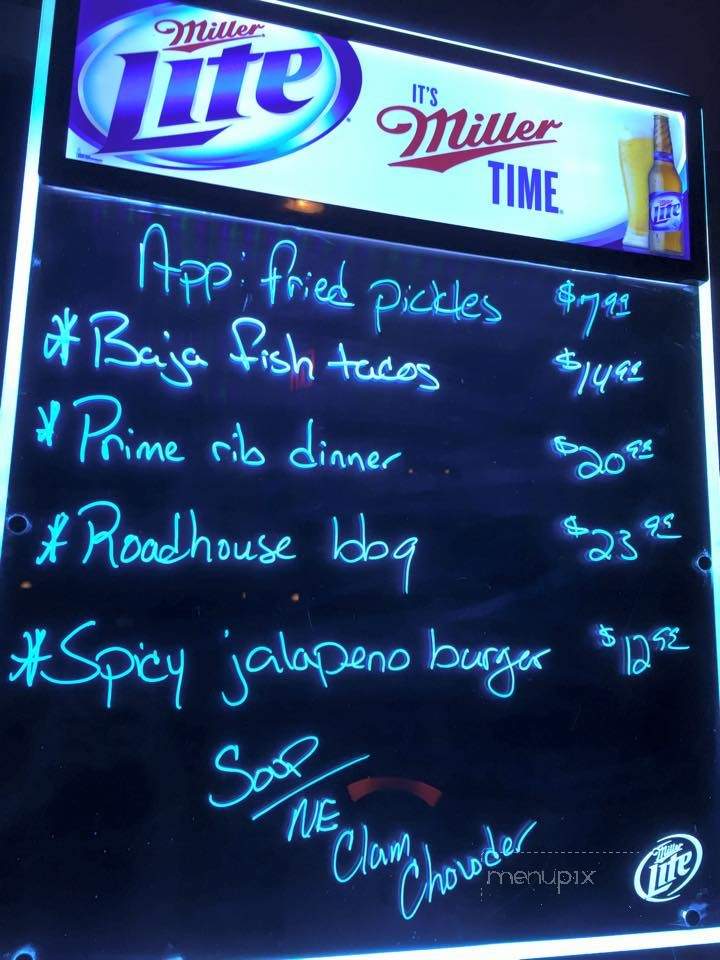 Miller
Lite
IT'S
Miller
TIME
Lite
App: fried pickles $7.99
* Baja fish tacos $14.95
* Prime rib dinner $20.95
* Roadhouse bbq $23.95
* Spicy jalapeno burger $12.95
Soup
NE
Clam
Chowder
menupix
Miller
Lite